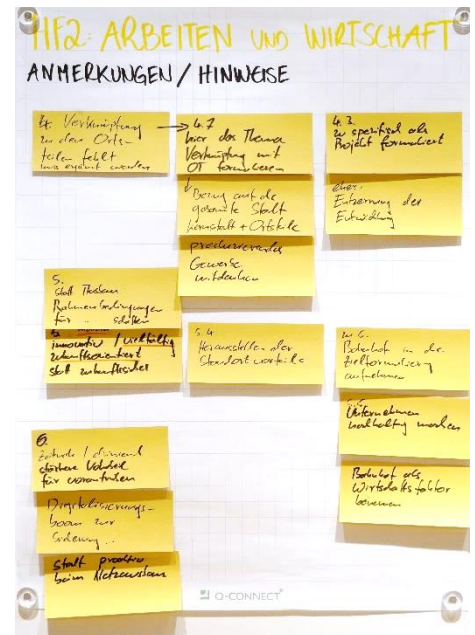 HF2: ARBEITEN UND WIRTSCHAFT
ANMERKUNGEN / HINWEISE
4. Verknüpfung
zu den Orts-
teilen fehlt
muss ergänzt werden
4.7
hier das Thema
Verknüpfung mit
OT formulieren
Bezug auf die
gesamte Stadt
Kernstadt + Ortsteile
produzierendes
Gewerbe
mitdenken
4.3
zu spezifisch als
Projekt formuliert
eher:
der
Entwicklung
5.
statt Themen
Rahmenbedingungen
für ..
innovativ / vielfältig
zukunftsorientiert
statt zukunftssicher
5.4
Herausstellen der
Standortvorteile
zu 6.
Bahnhof in die
Zielformulierung
aufnehmen
Unternehmen
nachhaltig machen
Bahnhof als
Wirtschaftsfaktor
benennen
6.
für vorantreiben
Digitalisierungs-
boom zur
statt proaktiv
beim Netzausbau
Q-CONNECT